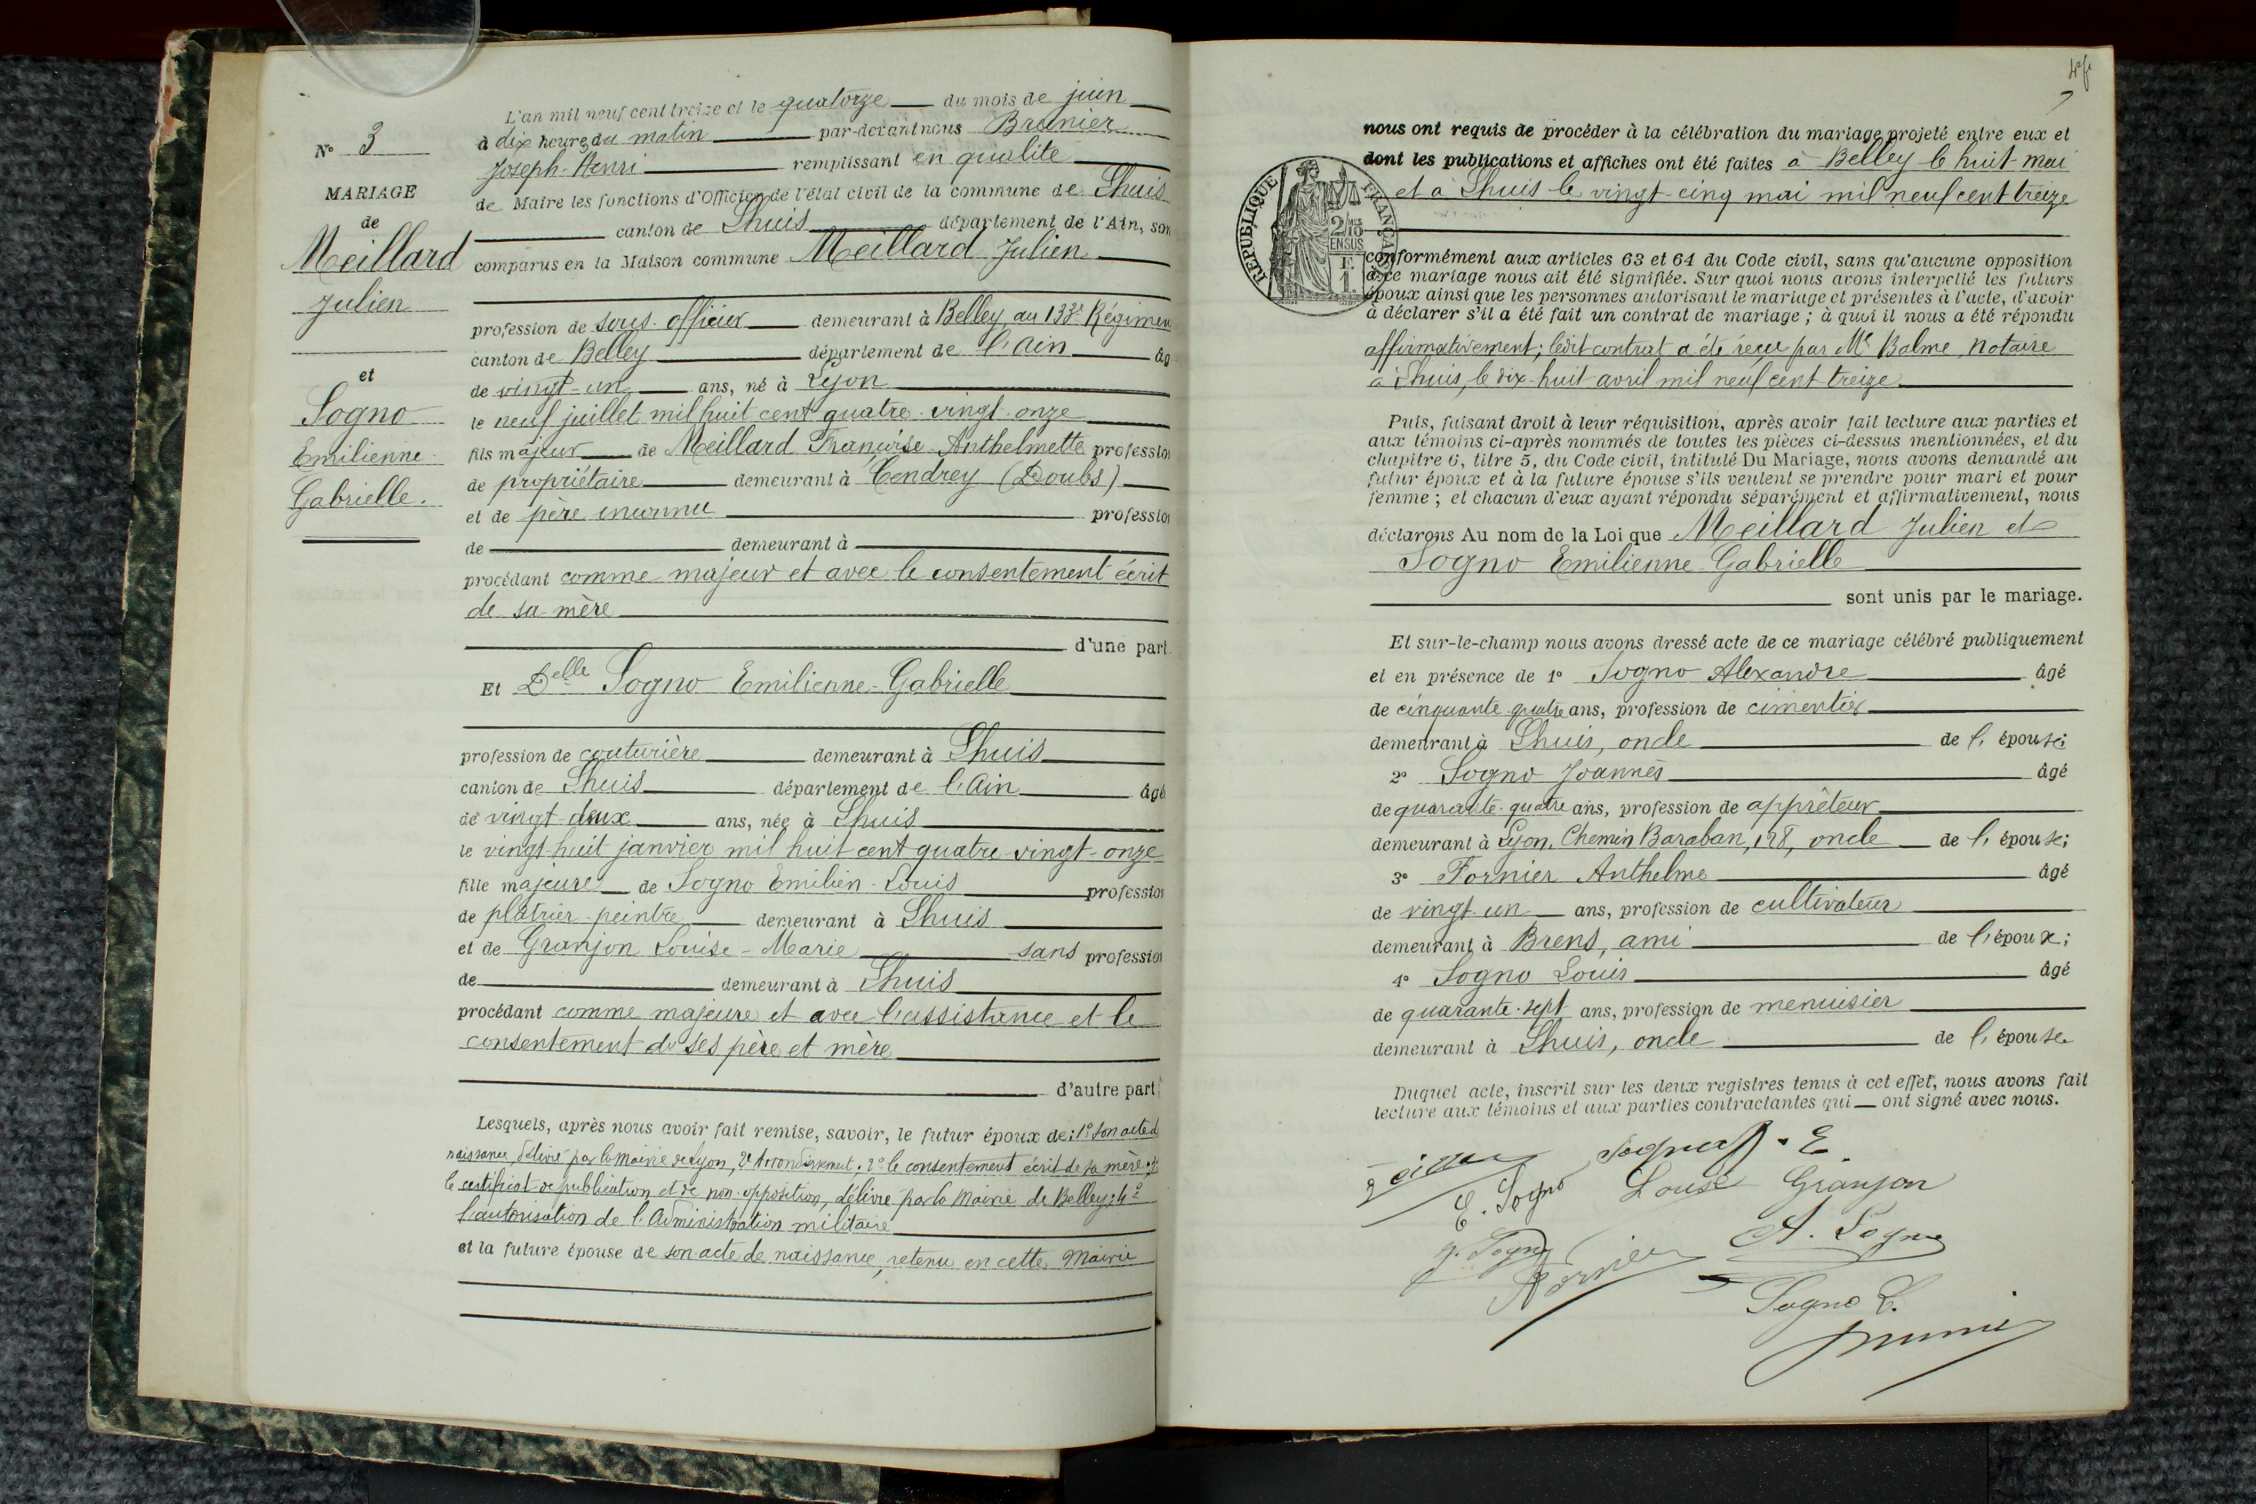 N° 3
MARIAGE
de
Meillard
Julien
et
Sogno
Emilienne
Gabrielle.
L'an mil neuf cent treize et le quatorze du mois de juin
à dix heures du matin par-devant nous Brunier
Joseph-Henri remplissant en qualité
de Maire les fonctions d'Officier de l'état civil de la commune de Lhuis
canton de Lhuis département de l'Ain, son
comparus en la Maison commune Meillard Julien
profession de sous-officier demeurant à Belley, au 133e Régimen
canton de Belley département de l'Ain âg
de vingt-un ans, né à Lyon
le neuf juillet mil huit cent quatre-vingt-onze
fils majeur de Meillard Françoise Anthelmette profession
de propriétaire demeurant à Cendrey (Doubs)
et de père inconnu profession
de demeurant à
procédant comme majeur et avec le consentement écrit
de sa mère
d'une part.
Et Delle Sogno Emilienne-Gabrielle
profession de couturière demeurant à Lhuis
canton de Lhuis département de l'Ain âgé
de vingt-deux ans, née à Lhuis
le vingt-huit janvier mil huit cent quatre-vingt-onze
fille majeure de Sogno Emilien-Louis profession
de plâtrier-peintre demeurant à Lhuis
et de Granjon Louise-Marie sans profession
de demeurant à Lhuis
procédant comme majeure et avec l'assistance et le
consentement de ses père et mère
d'autre part.
Lesquels, après nous avoir fait remise, savoir, le futur époux de: 1° son acte de
naissance, délivré par la Mairie de Lyon, 2e Arrondissement; 2° le consentement écrit de sa mère; 3°
le certificat de publication et de non-opposition, délivré par la Mairie de Belley; 4°
l'autorisation de l'Administration militaire
et la future épouse de son acte de naissance, retenu en cette Mairie
nous ont requis de procéder à la célébration du mariage projeté entre eux et
dont les publications et affiches ont été faites à Belley le huit mai
et à Lhuis le vingt-cinq mai mil neuf cent treize
RÉPUBLIQUE FRANÇAISE
2/10
EN SUS
F.
1.
conformément aux articles 63 et 64 du Code civil, sans qu'aucune opposition
à ce mariage nous ait été signifiée. Sur quoi nous avons interpellé les futurs
époux ainsi que les personnes autorisant le mariage et présentes à l'acte, d'avoir
à déclarer s'il a été fait un contrat de mariage; à quoi il nous a été répondu
affirmativement; ledit contrat a été reçu par Me Balme, Notaire
à Lhuis, le dix-huit avril mil neuf cent treize.
Puis, faisant droit à leur réquisition, après avoir fait lecture aux parties et
aux témoins ci-après nommés de toutes les pièces ci-dessus mentionnées, et du
chapitre 6, titre 5, du Code civil, intitulé Du Mariage, nous avons demandé au
futur époux et à la future épouse s'ils veulent se prendre pour mari et pour
femme; et chacun d'eux ayant répondu séparément et affirmativement, nous
déclarons Au nom de la Loi que Meillard Julien et
Sogno Emilienne Gabrielle
sont unis par le mariage.
Et sur-le-champ nous avons dressé acte de ce mariage célébré publiquement
et en présence de 1° Sogno Alexandre âgé
de cinquante-quatre ans, profession de cimentier
demeurant à Lhuis, oncle de l'épouse;
2° Sogno Joannès âgé
de quarante-quatre ans, profession de apprêteur
demeurant à Lyon, Chemin Baraban, 128, oncle de l'épouse;
3° Fornier Anthelme âgé
de vingt-un ans, profession de cultivateur
demeurant à Brens, ami de l'époux;
4° Sogno Louis âgé
de quarante-sept ans, profession de menuisier
demeurant à Lhuis, oncle de l'épouse
Duquel acte, inscrit sur les deux registres tenus à cet effet, nous avons fait
lecture aux témoins et aux parties contractantes qui ont signé avec nous.
E. Sogno Louise Granjon
J. Sogno A. Sogno
Fornier Sogno L.